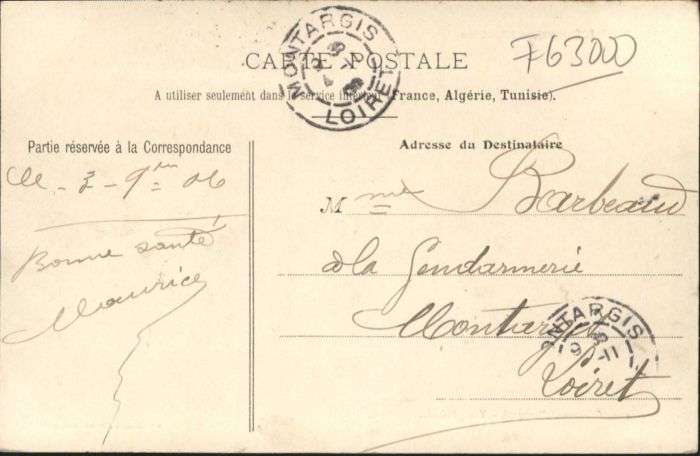 CARTE POSTALE
F63000
A utiliser seulement dans le service intérieur (France, Algérie, Tunisie).
MONTARGIS
LOIRET
Partie réservée à la Correspondance
M - 3 - 9bre = 06
Bonne santé
Maurice
Adresse du Destinataire
Mme Barbeaud
à la Gendarmerie
Montargis
Loiret
MONTARGIS